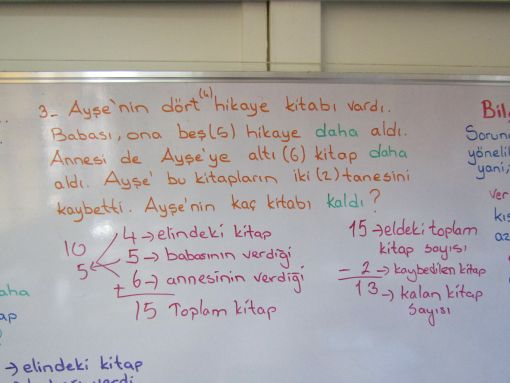 3- Ayşe'nin dört (4) hikaye kitabı vardı.
Babası, ona beş (5) hikaye daha aldı.
Annesi de Ayşe'ye altı (6) kitap daha
aldı. Ayşe' bu kitapların iki (2) tanesini
kaybetti. Ayşe'nin kaç kitabı kaldı?
4 → elindeki kitap
10
5 → babasının verdiği
5
+ 6 → annesinin verdiği
15 Toplam kitap
15 → eldeki toplam
kitap sayısı
- 2 → kaybedilen kitap
13 → kalan kitap
sayısı
Bil
Sorun
yöneli
yani,
ver
kıs
az
aha
ap
→ elindeki kitap